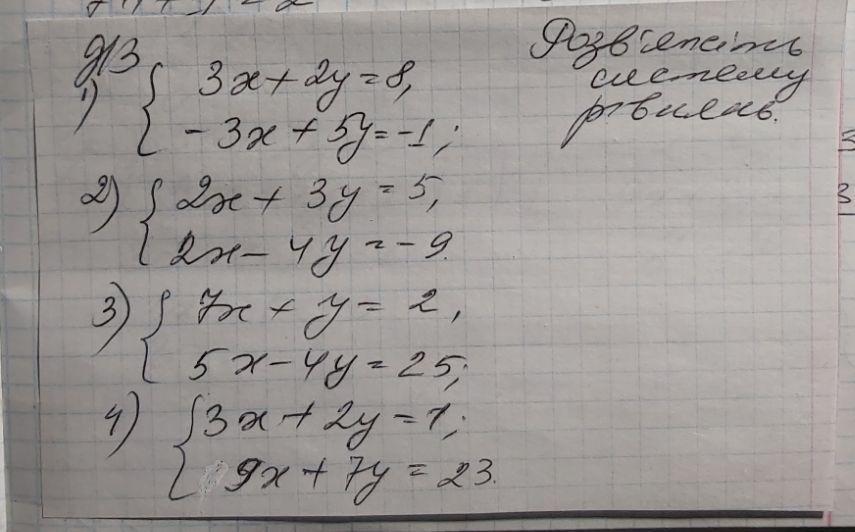 Розв'яжіть
систему
рівнянь.
Д/З
1) { 3x + 2y = 8,
- 3x + 5y = -1;
2) { 2x + 3y = 5,
2x - 4y = - 9.
3) { 7x + y = 2,
5x - 4y = 25;
4) { 3x + 2y = 1;
9x + 7y = 23.
3
3